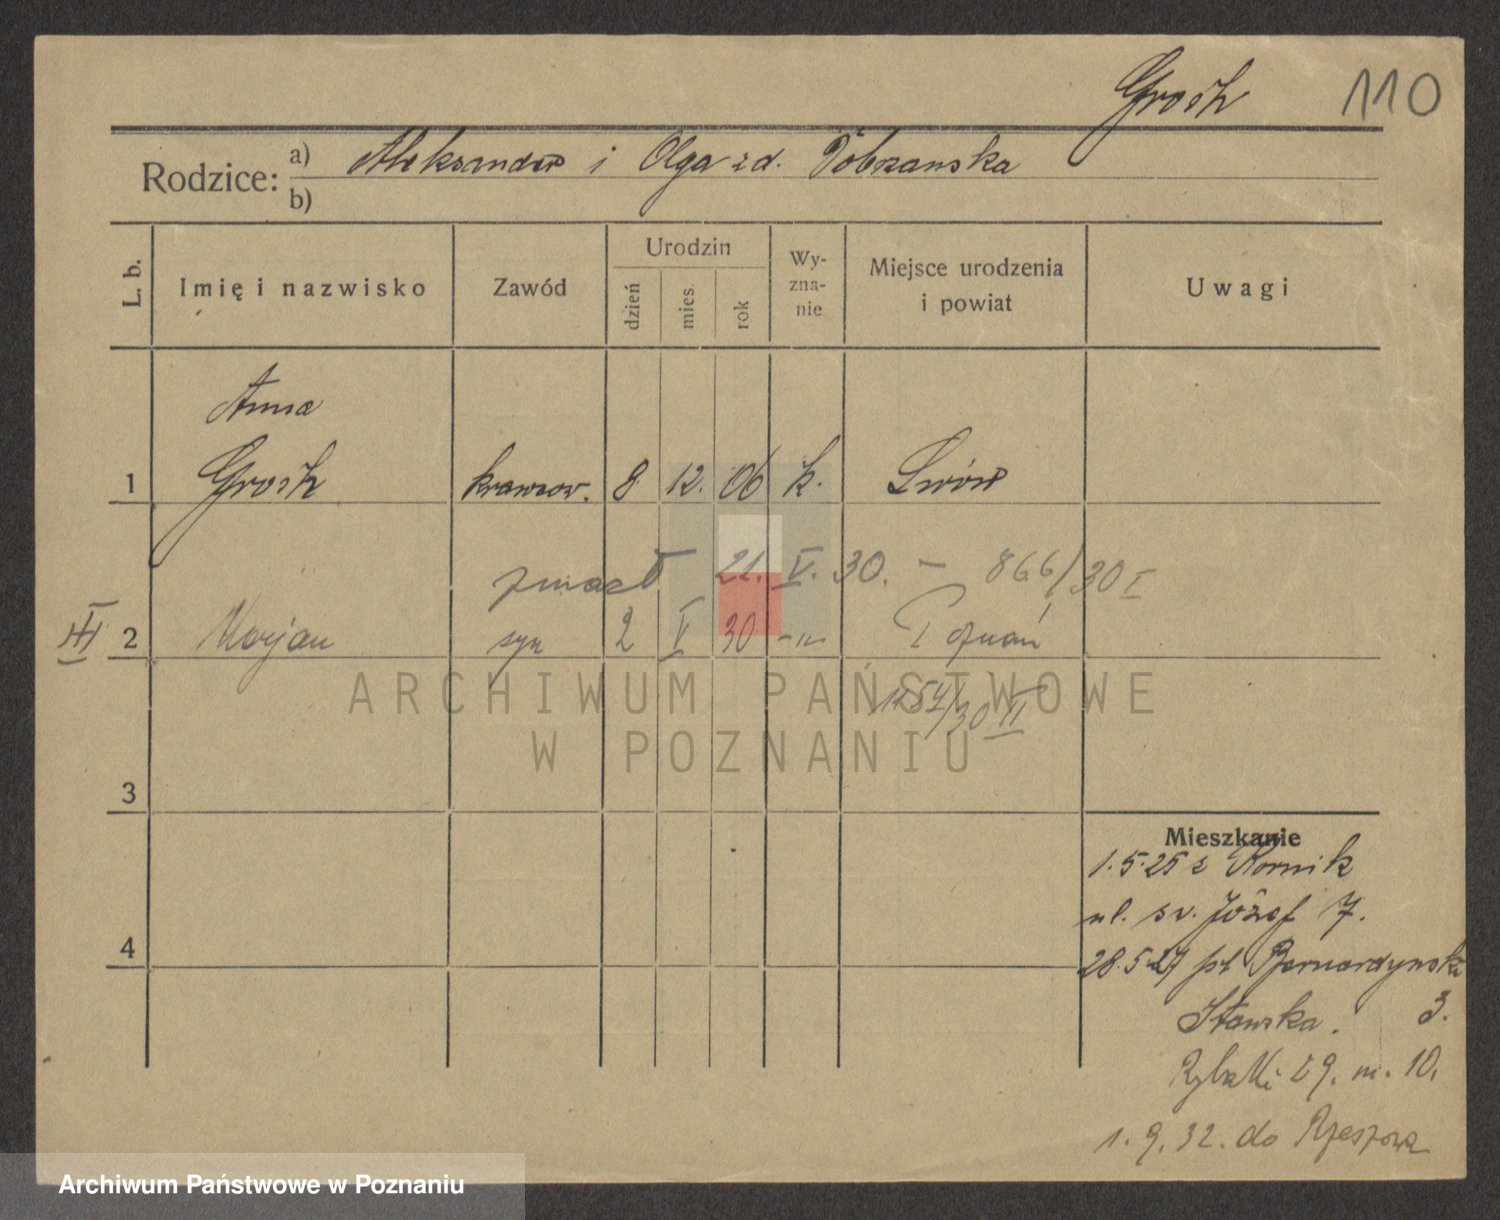 Grosh 110
Rodzice: a) Aleksander i Olga zd. Dobrzanska
b)
L. b.
Imię i nazwisko
Zawód
Urodzin
dzień
mies.
rok
Wy-
zna-
nie
Miejsce urodzenia
i powiat
Uwagi
Anna
1 Grosh krawcow. 8 12. 06 k. Lwów
zmarł 21. V. 30. – 866/30 I
III 2 Marjan syn 2 V 30 -"- Poznań
1254/30 II
3
4
Mieszkanie
1.5.25 z Kornik
ul. sw. Józef 7.
28.5.27 pl Bernardynski
3.
Stawska.
Rybaki 29. m. 10.
1.9.32. do Rzeszowa
ARCHIWUM PAŃSTWOWE
W POZNANIU
Archiwum Państwowe w Poznaniu